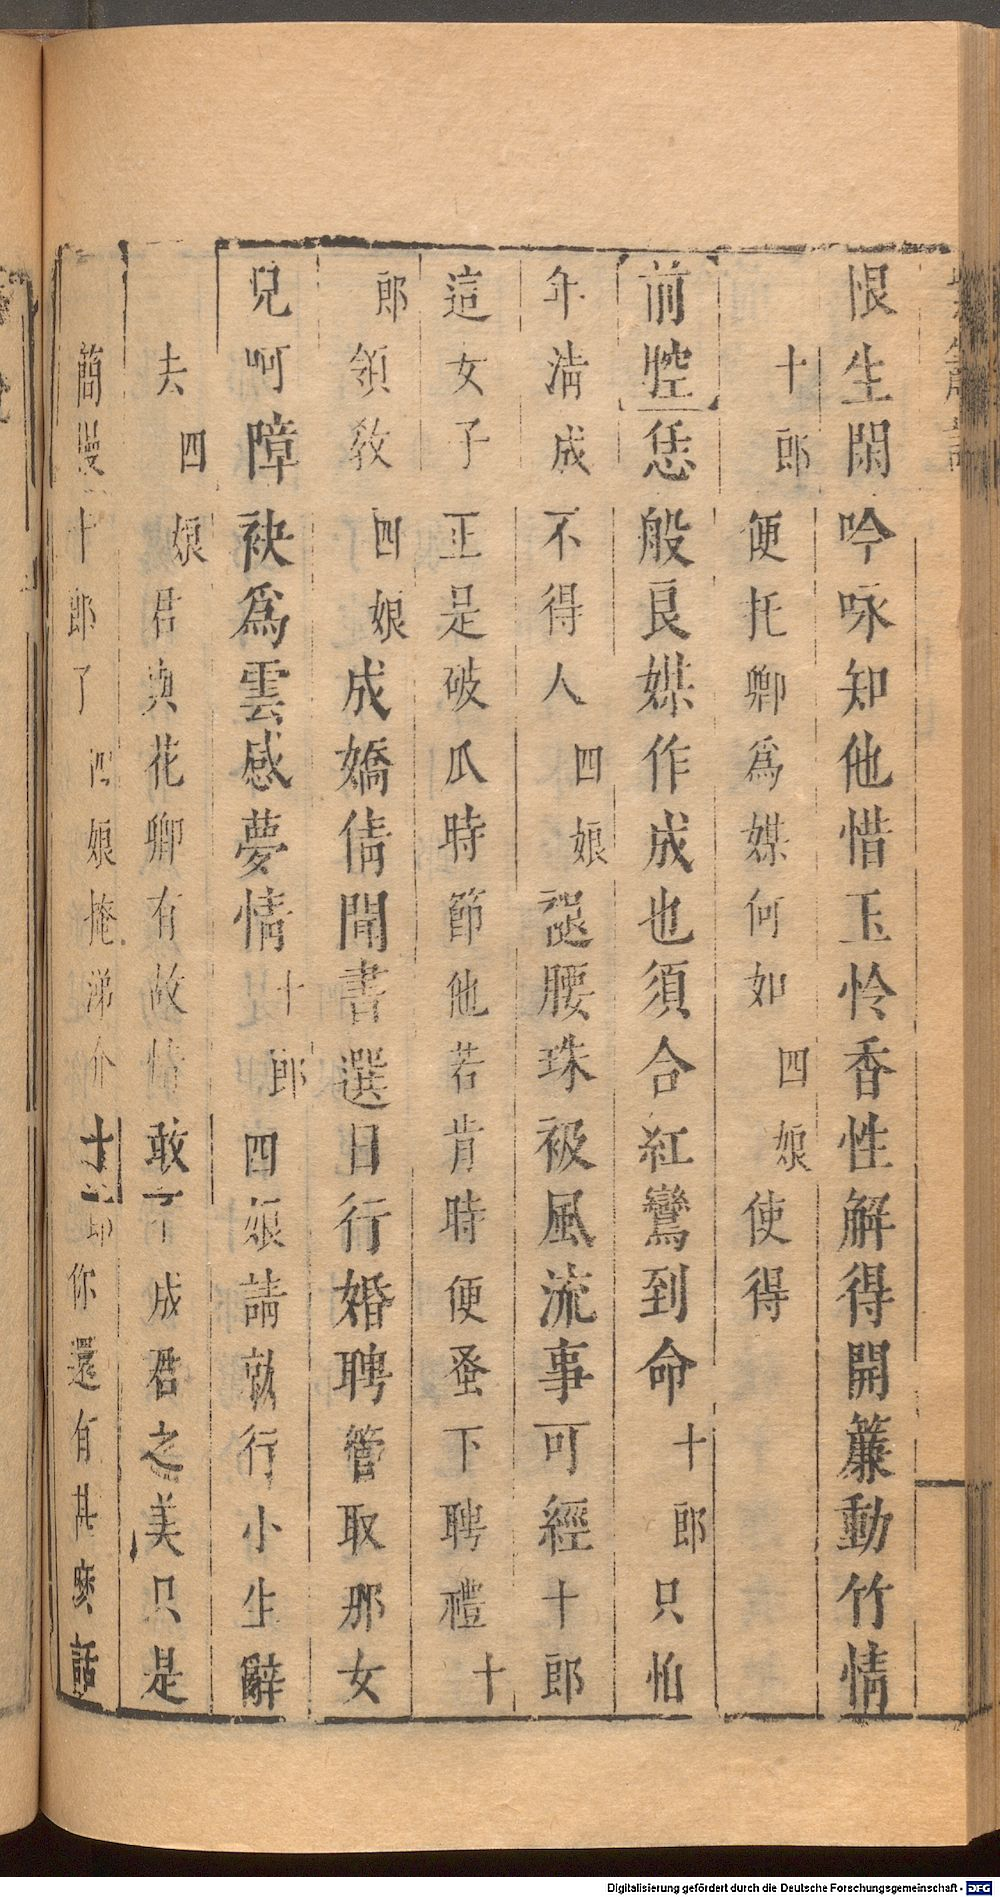 恨生閑吟咏知他惜玉怜香性解得開簾動竹情
十郎便托卿爲媒何如四娘使得
前腔恁般良媒作成也須合紅鸞到命十郎只怕
年淸成不得人四娘褪腰珠衱風流事可經十郎
這女子正是破瓜時節他若肯時便蚤下聘禮十
郎領教四娘成嬌倩開書選日行婚聘管取那女
兒呵障袂爲雲感夢情十郎四娘請就行小生辭
去四娘君與花卿有故情敢不成君之美只是
簡慢十郎了四娘掩涕介十郎你還有甚麼話
Digitalisierung gefördert durch die Deutsche Forschungsgemeinschaft - DFG